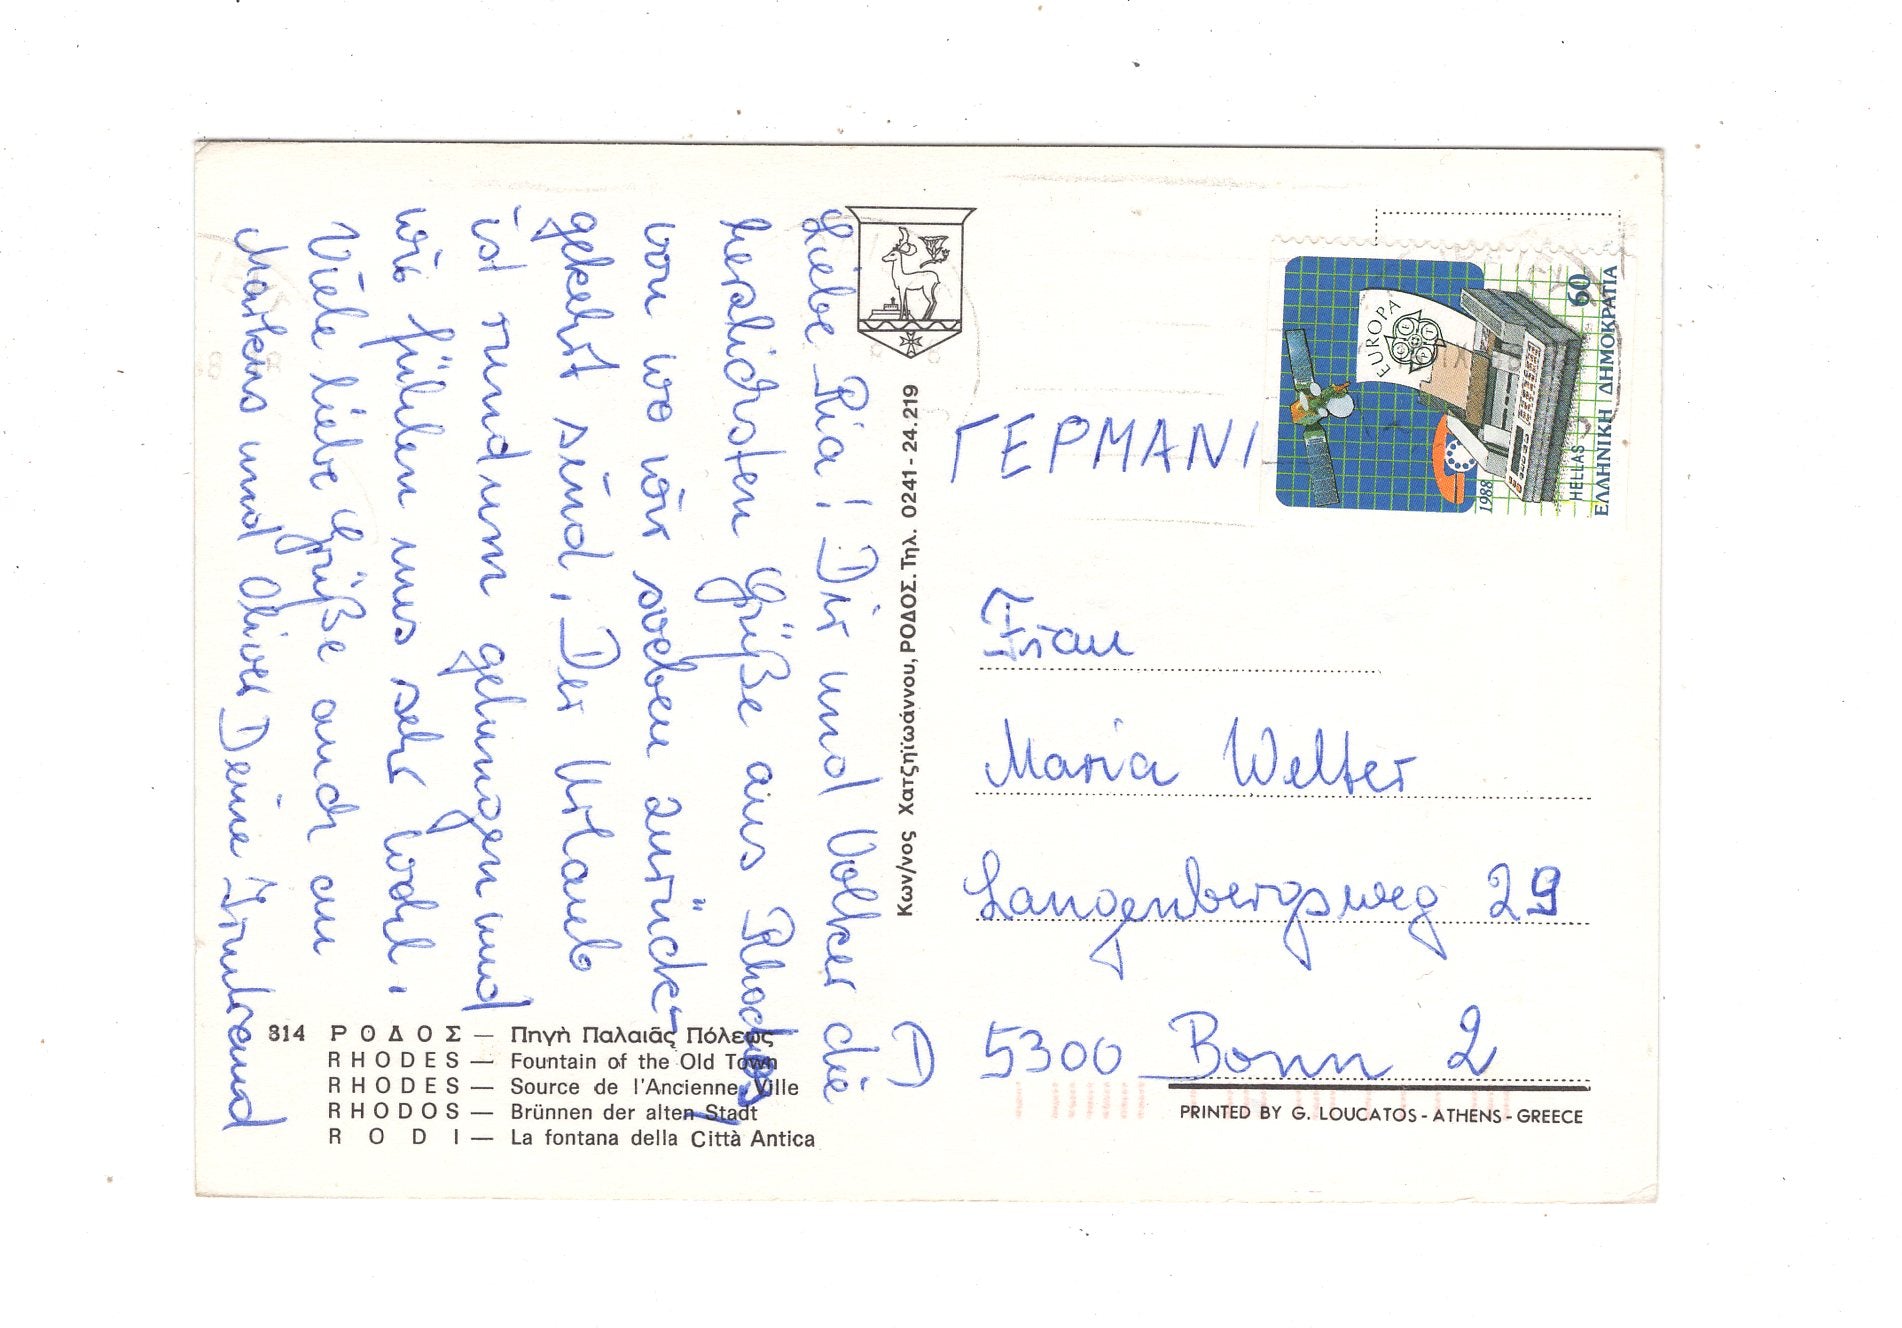 Liebe Ria! Dir und Volker die
herzlichsten Grüße aus Rhodos,
von wo wir soeben zurück-
gekehrt sind. Der Urlaub
ist rundum gelungen und
wir fühlen uns sehr wohl.
Viele liebe Grüße auch an
Markus und Oliver Deine Irmtraud
814 ΡΟΔΟΣ — Πηγὴ Παλαιᾶς Πόλεως
RHODES — Fountain of the Old Town
RHODES — Source de l'Ancienne Ville
RHODOS — Brünnen der alten Stadt
RODI — La fontana della Città Antica
Κων/νος Χατζηϊωάννου, ΡΟΔΟΣ. Τηλ. 0241 - 24.219
EUROPA
CEPT
1988
HELLAS
60
ΕΛΛΗΝΙΚΗ ΔΗΜΟΚΡΑΤΙΑ
ΓΕΡΜΑΝΙ
Frau
Maria Welter
Langenbergsweg 29
D 5300 Bonn 2
PRINTED BY G. LOUCATOS - ATHENS - GREECE